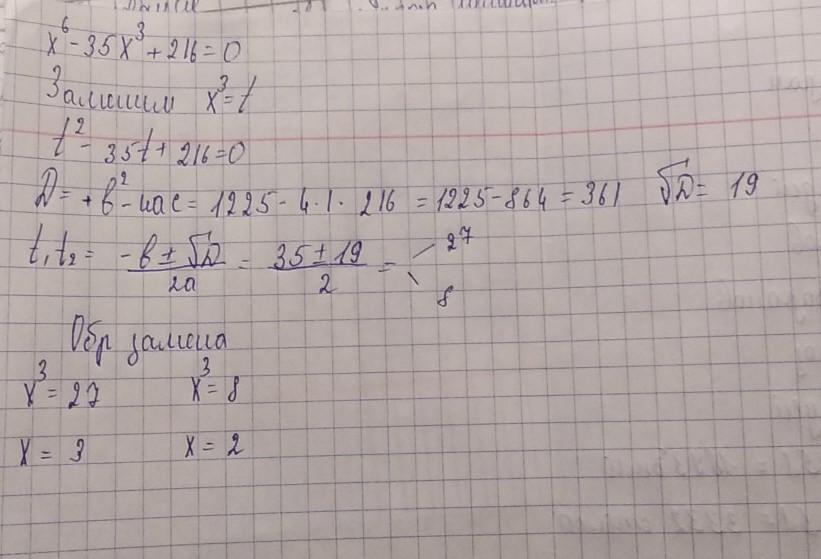 x⁶ - 35x³ + 216 = 0
Заменим x³ = t
t² - 35t + 216 = 0
D = + b² - 4ac = 1225 - 4 · 1 · 216 = 1225 - 864 = 361 √D = 19
t₁ t₂ = (-b ± √D)/2a = (35 ± 19)/2 = 27
8
Обр замена
x³ = 27 x³ = 8
x = 3 x = 2